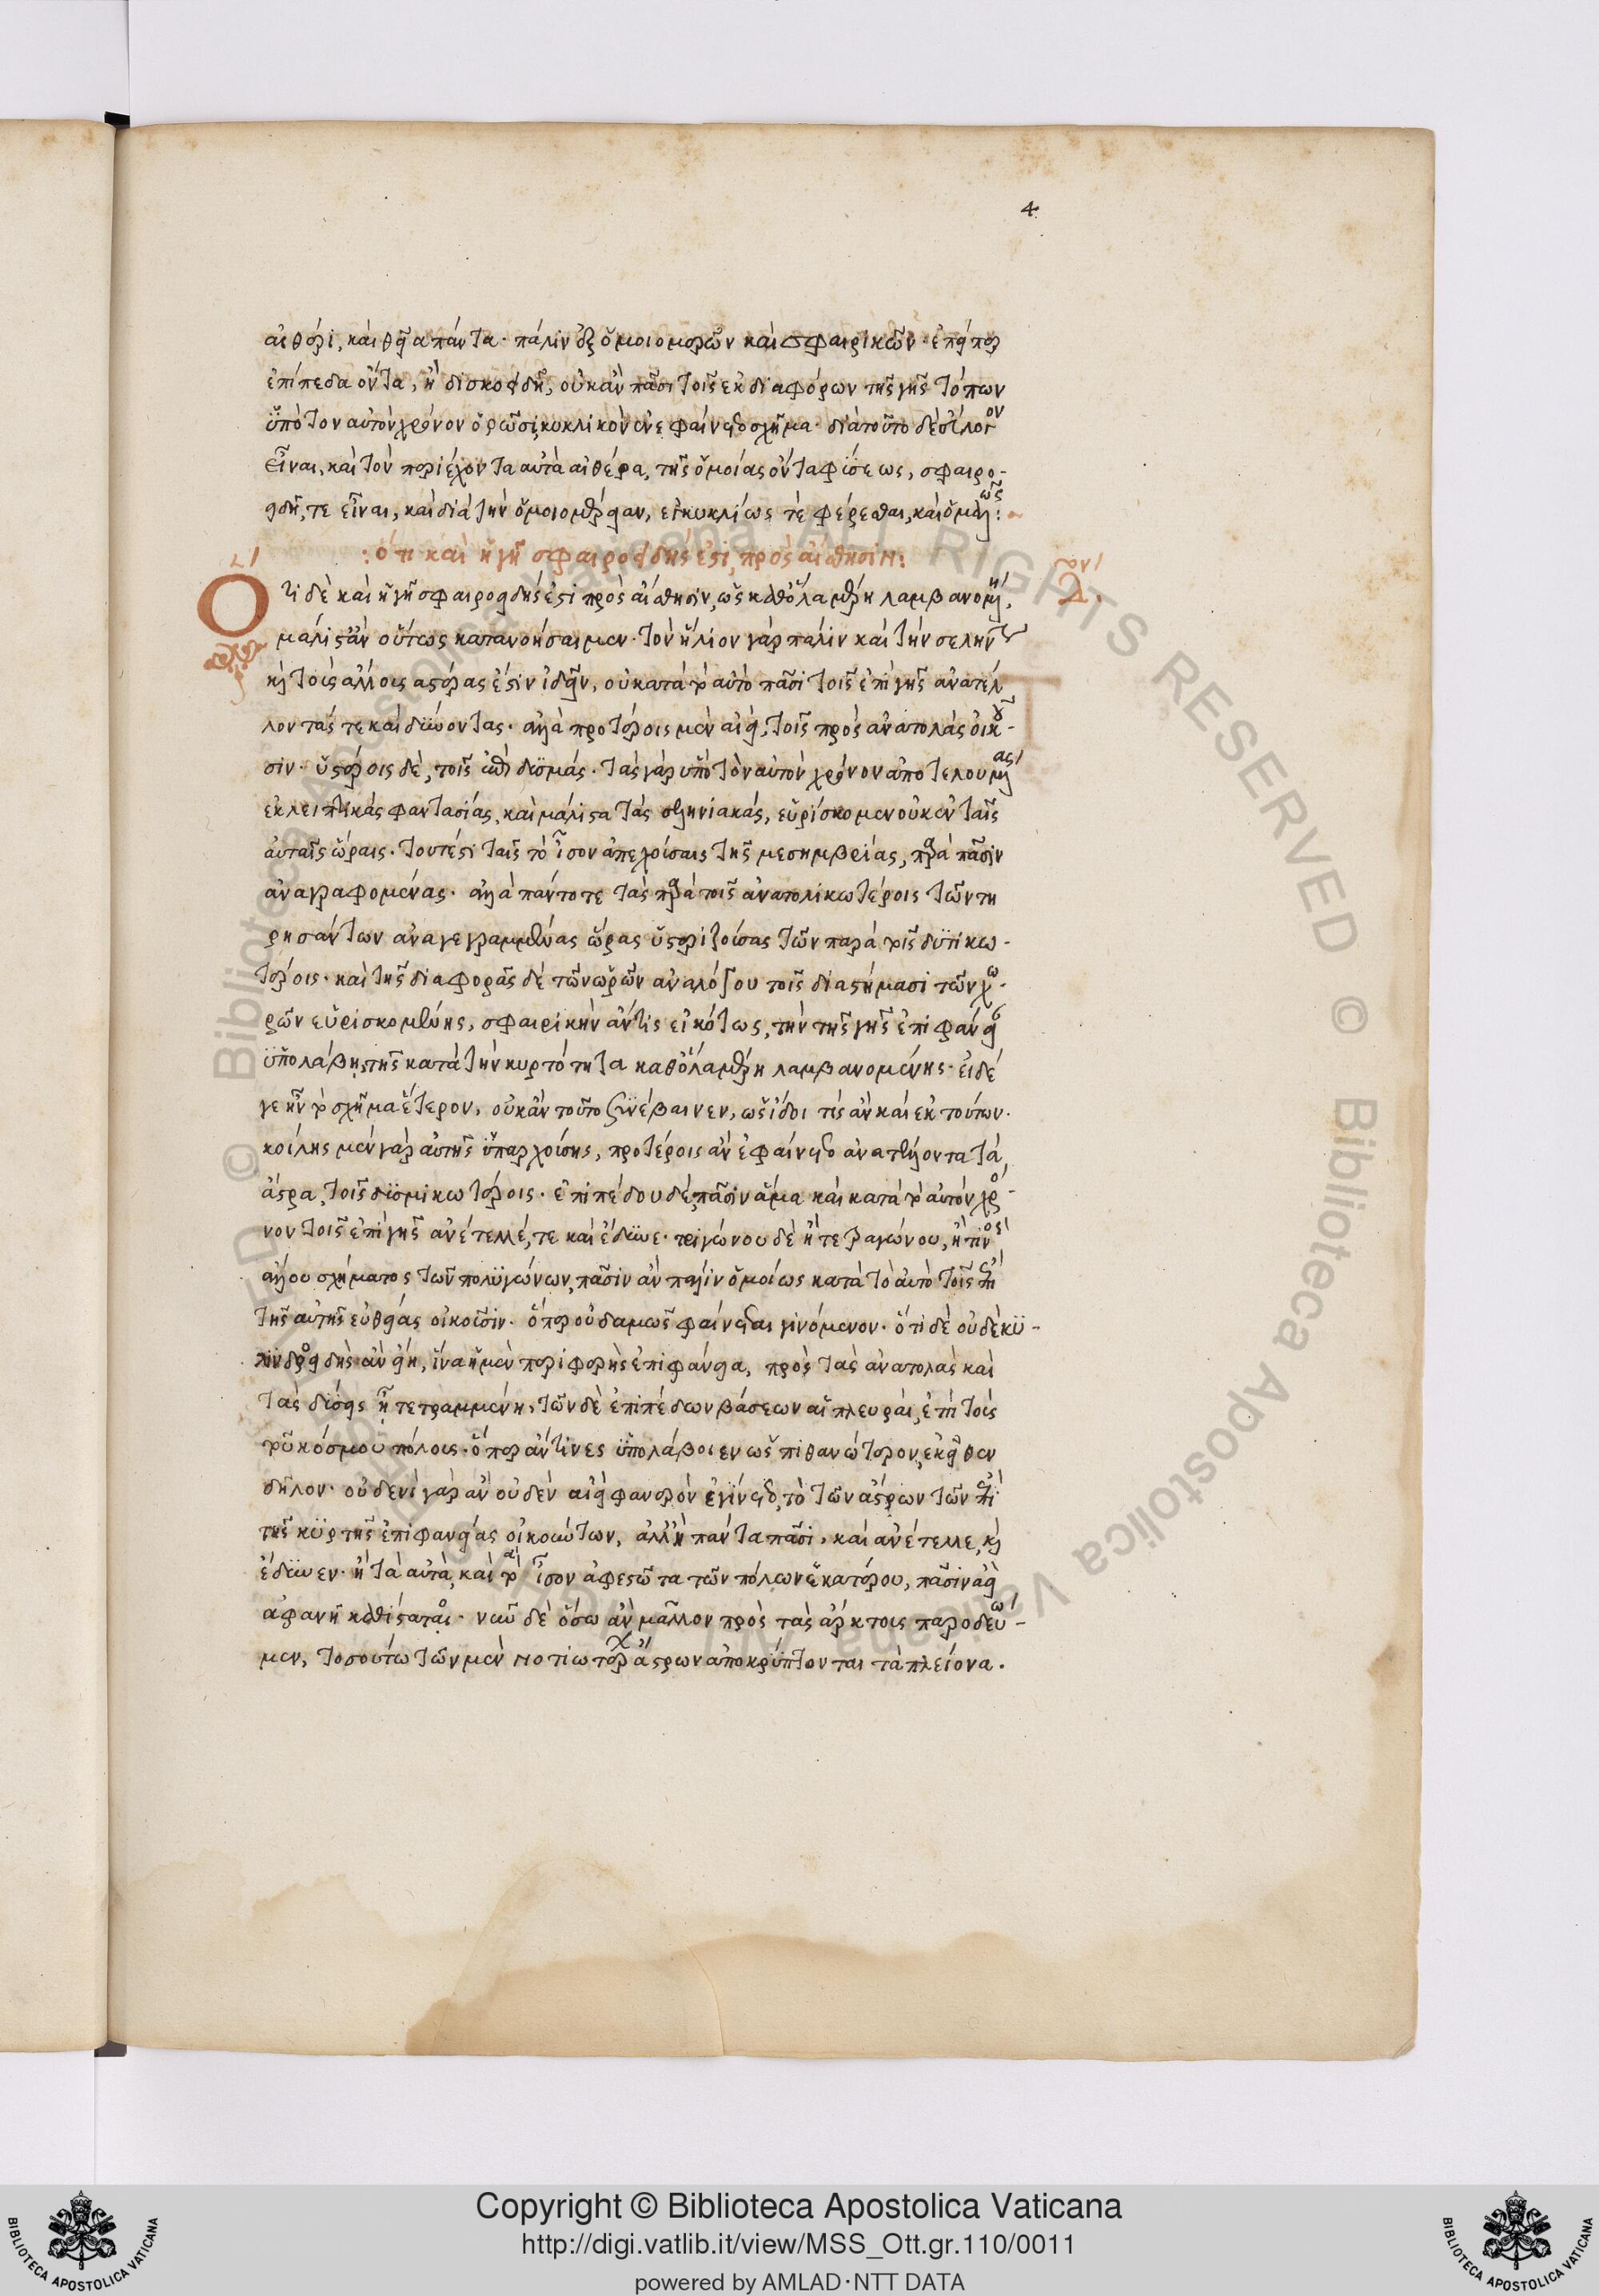 4
αἰθέρι, καὶ θεῖα πάντα· πάλιν ἐξ ὁμοιομερῶν καὶ σφαιρικῶν· ἐπείπερ
ἐπίπεδα ὄντα, ἢ δισκοειδῆ, οὐκ ἂν πᾶσι τοῖς ἐκ διαφόρων τῆς γῆς τόπων
ὑπὸ τὸν αὐτὸν χρόνον ὁρῶσι, κυκλικὸν ἐνεφαίνετο σχῆμα· διὰ τοῦτο δὲ εὔλογον
εἶναι, καὶ τὸν περιέχοντα αὐτὰ αἰθέρα, τῆς ὁμοίας ὄντα φύσεως, σφαιρο-
ειδῆ, τε εἶναι, καὶ διὰ τὴν ὁμοιομέρειαν, ἐγκυκλίως τὲ φέρεσθαι, καὶ ὁμαλῶς:
:ὅτι καὶ ἡ γῆ σφαιροειδής ἐστι, πρὸς αἴσθησιν:
Ὅτι δὲ καὶ ἡ γῆ σφαιροειδής ἐστι πρὸς αἴσθησιν, ὡς καθ' ὅλα μέρη λαμβανομένη,
μάλιστ' ἂν οὕτως κατανοήσαιμεν· τὸν ἥλιον γὰρ πάλιν καὶ τὴν σελήνην
καὶ τοὺς ἄλλους ἀστέρας ἔστιν ἰδεῖν, οὐ κατὰ τὸ αὐτὸ πᾶσι τοῖς ἐπὶ γῆς ἀνατέλ
λοντάς τε καὶ δύνοντας· ἀλλὰ προτέροις μὲν αἰεὶ, τοῖς πρὸς ἀνατολὰς οἰκοῦ-
σιν· ὑστέροις δὲ, τοῖς ἐπὶ δυσμάς· τὰς γὰρ ὑπὸ τὸν αὐτὸν χρόνον ἀποτελουμένας
ἐκλειπτικὰς φαντασίας, καὶ μάλιστα τὰς σεληνιακάς, εὑρίσκομεν οὐκ ἐν ταῖς
αὐταῖς ὥραις· τουτέστι ταῖς τὸ ἴσον ἀπεχούσαις τῆς μεσημβρίας, παρὰ πᾶσιν
ἀναγραφομένας· ἀλλὰ πάντοτε τὰς παρὰ τοῖς ἀνατολικωτέροις τῶν τη
ρησάντων ἀναγεγραμμένας ὥρας ὑστεριζούσας τῶν παρὰ τοῖς δυτικω-
τέροις· καὶ τῆς διαφορᾶς δὲ τῶν ὡρῶν ἀναλόγου τοῖς διαστήμασι τῶν χω-
ρῶν εὑρισκομένης, σφαιρικὴν ἄν τις εἰκότως, τὴν τῆς γῆς ἐπιφάνειαν
ὑπολάβῃ, τῆς κατὰ τὴν κυρτότητα καθ' ὅλα μέρη λαμβανομένης· εἰ δέ
γε ἦν τὸ σχῆμα ἕτερον, οὐκ ἂν τοῦτο συνέβαινεν, ὡς ἴδοι τίς ἂν καὶ ἐκ τούτων·
κοίλης μὲν γὰρ αὐτῆς ὑπαρχούσης, προτέροις ἂν ἐφαίνετο ἀνατέλλοντα τὰ
ἄστρα, τοῖς δυσμικωτέροις· ἐπιπέδου δέ, πᾶσιν ἅμα καὶ κατὰ τὸν αὐτὸν χρό-
νον τοῖς ἐπὶ γῆς ἀνέτελλέ, τε καὶ ἔδυνε· τριγώνου δὲ ἢ τετραγώνου, ἤ τινος
ἄλλου σχήματος τῶν πολυγώνων, πᾶσιν ἂν πάλιν ὁμοίως κατὰ τὸ αὐτὸ τοῖς ἐπὶ
τῆς αὐτῆς εὐθείας οἰκοῦσιν· ὅπερ οὐδαμῶς φαίνεται γινόμενον· ὅτι δὲ οὐδὲ κυ-
λινδροειδὴς ἂν εἴη, ἵνα ἡ μὲν περιφερὴς ἐπιφάνεια, πρὸς τὰς ἀνατολὰς καὶ
τὰς δύσεις ᾖ τετραμμένη, τῶν δὲ ἐπιπέδων βάσεων αἱ πλευραὶ, ἐπὶ τοὺς
τοῦ κόσμου πόλους· ὅπερ ἄν τινες ὑπολάβοιεν ὡς πιθανώτερον, ἐκεῖθεν
δῆλον· οὐδενὶ γὰρ ἂν οὐδὲν αἰεὶ φανερὸν ἐγίνετο, τὸ τῶν ἄστρων τῶν ἐπὶ
τῆς κυρτῆς ἐπιφανείας οἰκούντων, ἀλλ' ἢ πάντα πᾶσι, καὶ ἀνέτελλε, καὶ
ἔδυνεν· ἢ τὰ αὐτὰ, καὶ τὰ ἴσον ἀφεστῶτα τῶν πόλων ἑκατέρου, πᾶσιν ἀεὶ
ἀφανῆ καθίσταται· νῦν δὲ ὅσῳ ἂν μᾶλλον πρὸς τὰς ἄρκτους παροδεύω-
μεν, τοσούτῳ τῶν μὲν νοτιωτέρων ἄστρων ἀποκρύπτονται τὰ πλείονα.
Copyright © Biblioteca Apostolica Vaticana
http://digi.vatlib.it/view/MSS_Ott.gr.110/0011
powered by AMLAD·NTT DATA